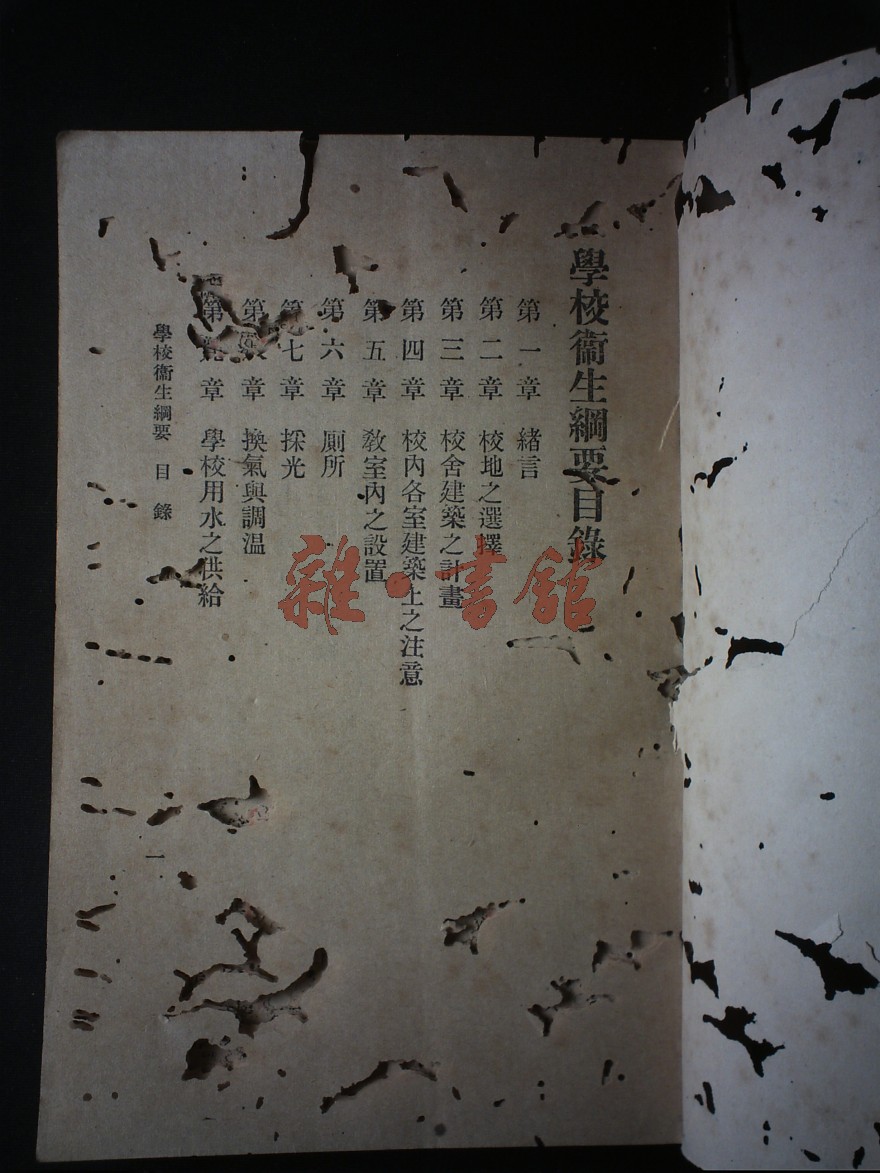 學校衞生綱要目錄
第一章 緒言
第二章 校地之選擇
第三章 校舍建築之計畫
第四章 校內各室建築上之注意
第五章 敎室內之設置
第六章 厠所
第七章 採光
第 章 換氣與調温
第 章 學校用水之供給
學校衞生綱要 目錄
一
雜·書館